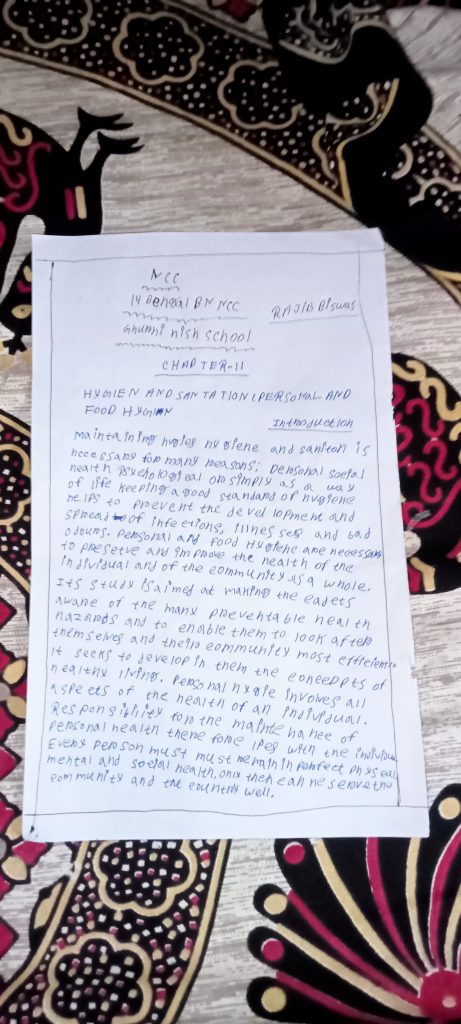 NCC
14 Bengal BN NCC
RAJIB Biswas
Ghurni High School
CHAPTER-11
HYGIEN AND SANTATION (PERSONAL AND
FOOD HYGIEN
Introduction
Maintaining hygiene and saniton is
necessary for many reasons; personal social
health Psychological or simply as a way
of life keeping a good standard of hygiene
helps to prevent the development and
spread of infections, illnesses and bad
odours. personal and Food Hygiene are necessary
to presetve and improve the health of the
individual and of the community as a whole.
Its study is aimed at making the cadets
aware of the many preventable health
hazards and to enable them to look after
themselves and their community most efficiently
it seeks to develop in them the conceppts of
healthy living. Personal involves all
aspects of the health of an individual.
Responsibility for the maintehance of
personal health there fore lies with the individual
Every person must must remain in perfect physical
mental and social health, only then can he serve the
community and the country well.